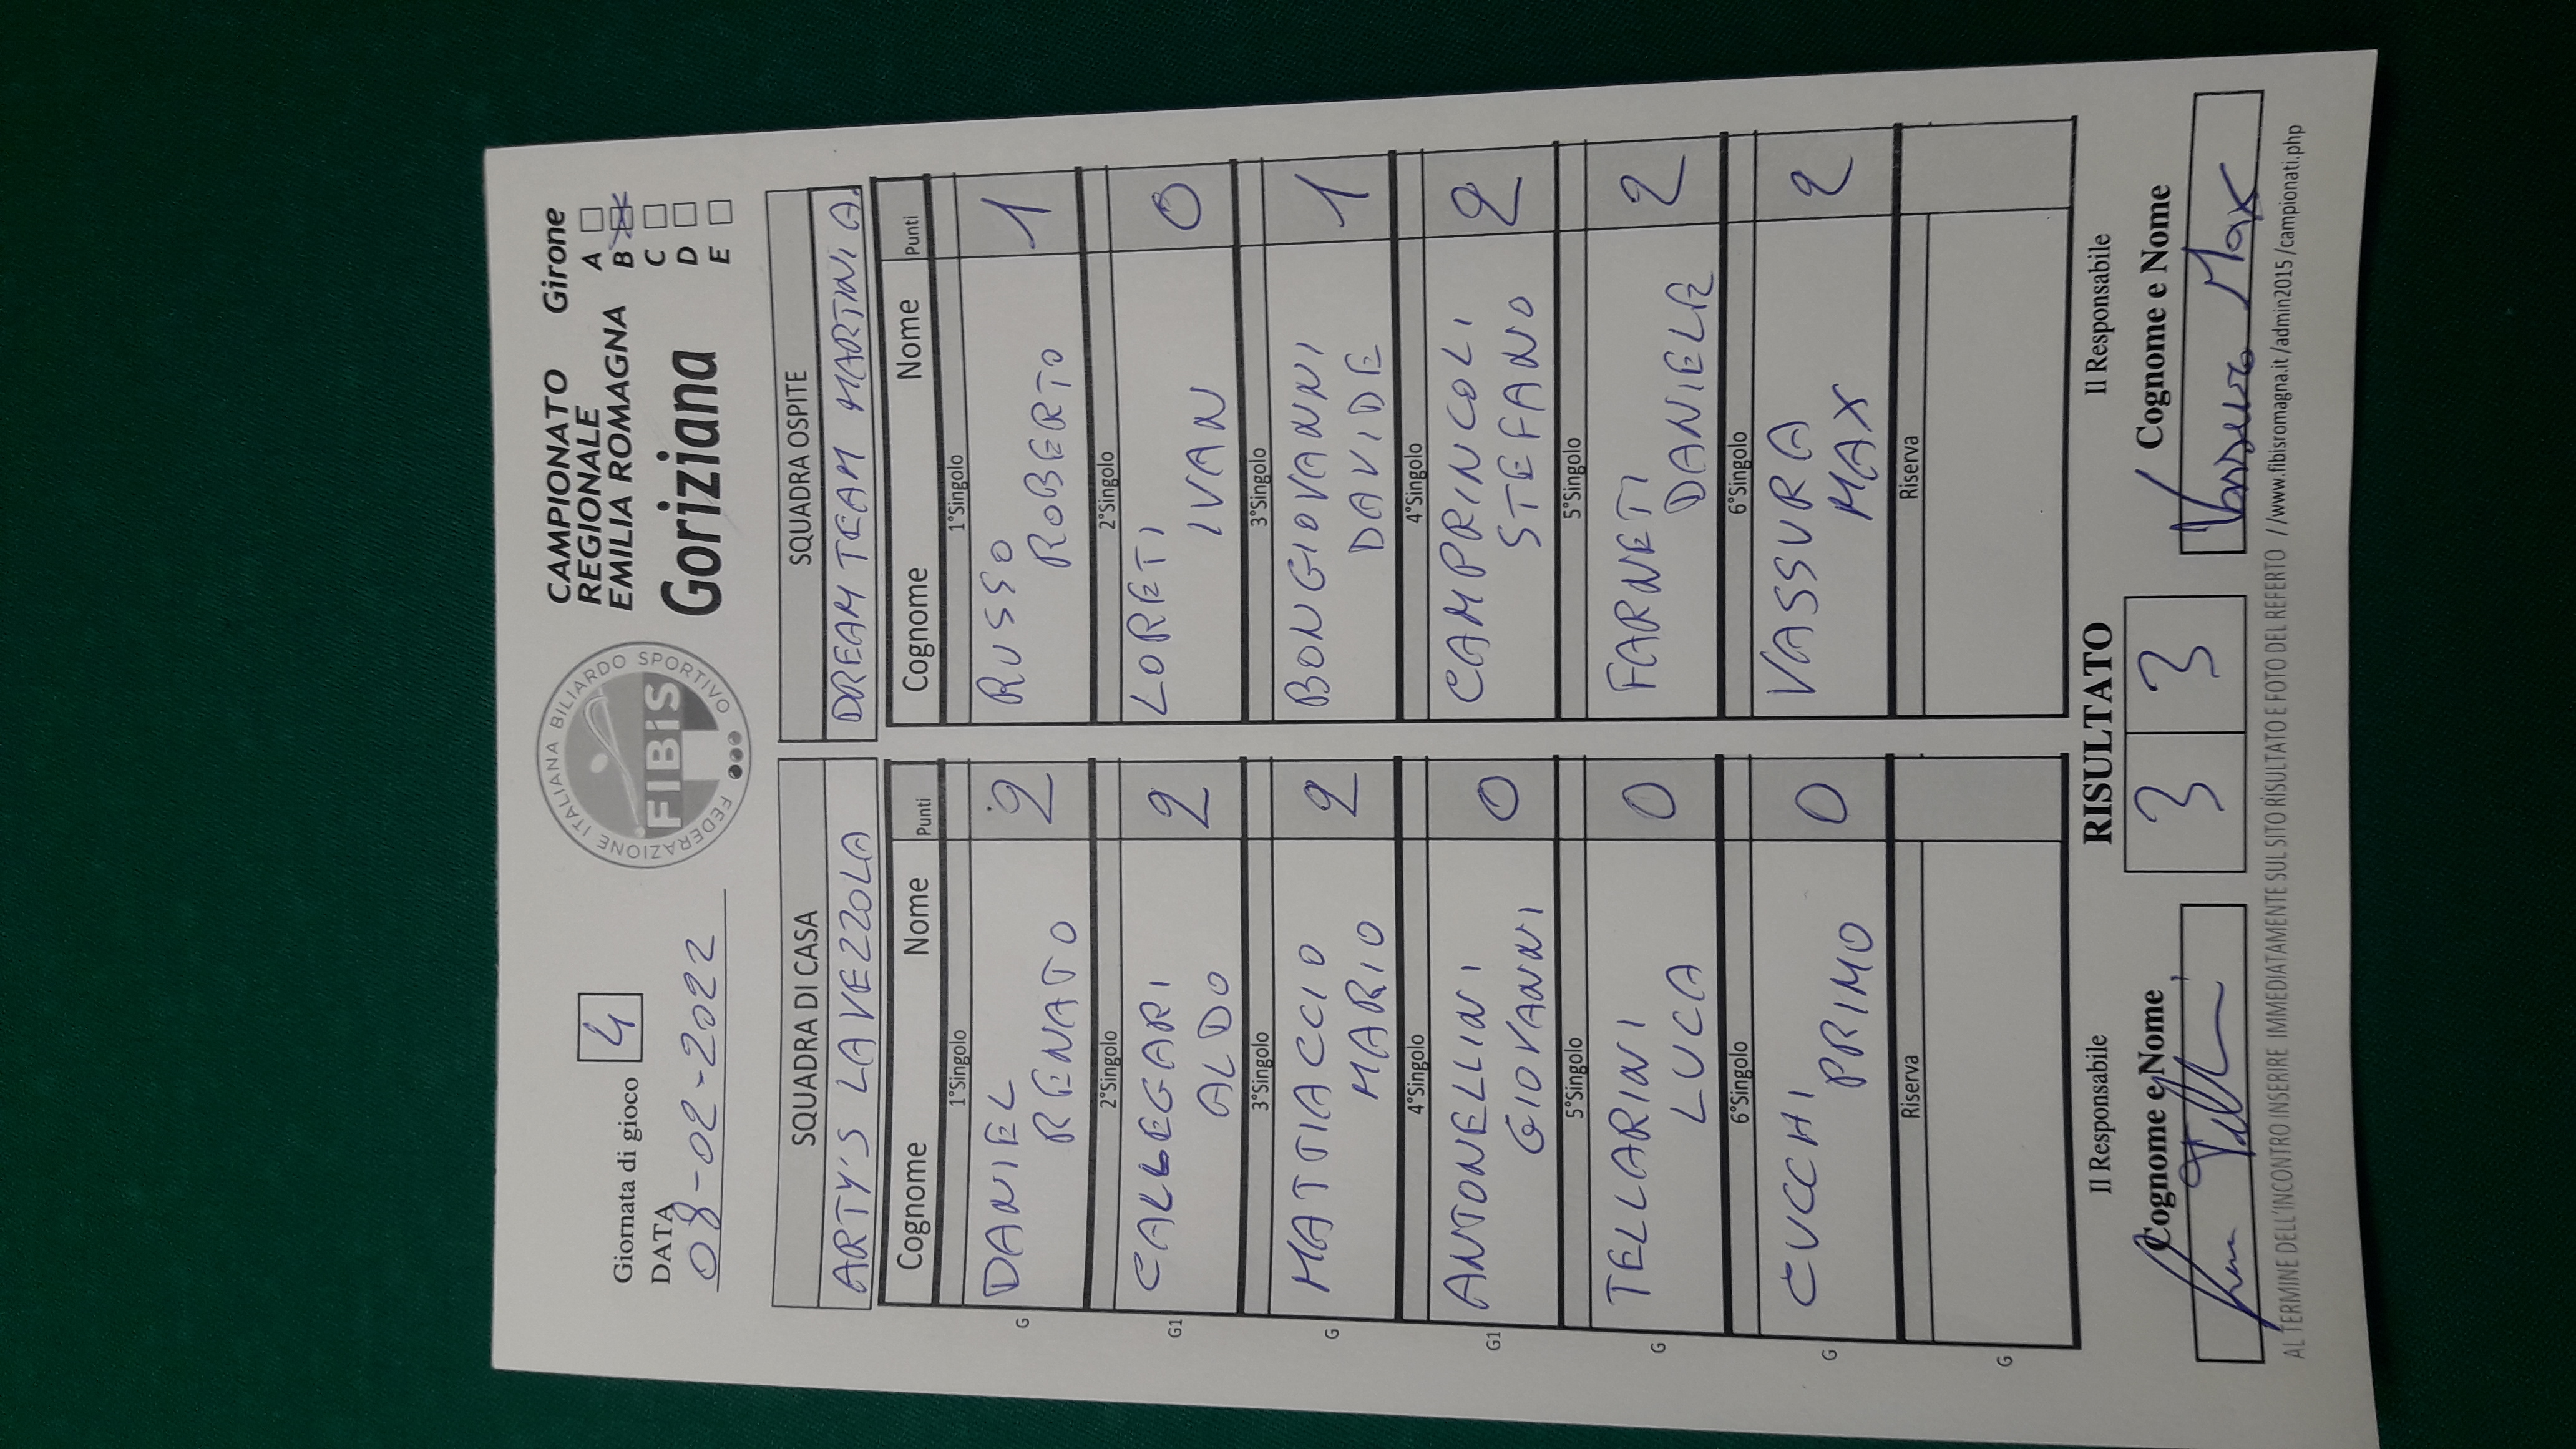 Giornata di gioco 4
DATA
08-02-2022
FEDERAZIONE ITALIANA BILIARDO SPORTIVO
FIBiS
CAMPIONATO
REGIONALE
EMILIA ROMAGNA
Goriziana
Girone
A
B
C
D
E
SQUADRA DI CASA
ARTY'S LAVEZZOLA
Cognome Nome Punti
1°Singolo
G DANIEL
RENATO 2
2°Singolo
G1 CALLEGARI
ALDO 2
3°Singolo
G MATTIACCIO
MARIO 2
4°Singolo
G1 ANTONELLINI
GIOVANNI 0
5°Singolo
G TELLARINI
LUCA 0
6°Singolo
G CUCCHI
PRIMO 0
Riserva
G
SQUADRA OSPITE
DREAM TEAM MARTINI A.
Cognome Nome Punti
1°Singolo
RUSSO
ROBERTO 1
2°Singolo
LORETI
IVAN 0
3°Singolo
BONGIOVANNI
DAVIDE 1
4°Singolo
CAMPRINCOLI
STEFANO 2
5°Singolo
FARNETI
DANIELE 2
6°Singolo
VASSURA
MAX 2
Riserva
Il Responsabile
Cognome e Nome
RISULTATO
3 3
Il Responsabile
Cognome e Nome
Vassura Max
AL TERMINE DELL'INCONTRO INSERIRE IMMEDIATAMENTE SUL SITO RISULTATO E FOTO DEL REFERTO //www.fibisromagna.it/admin2015/campionati.php